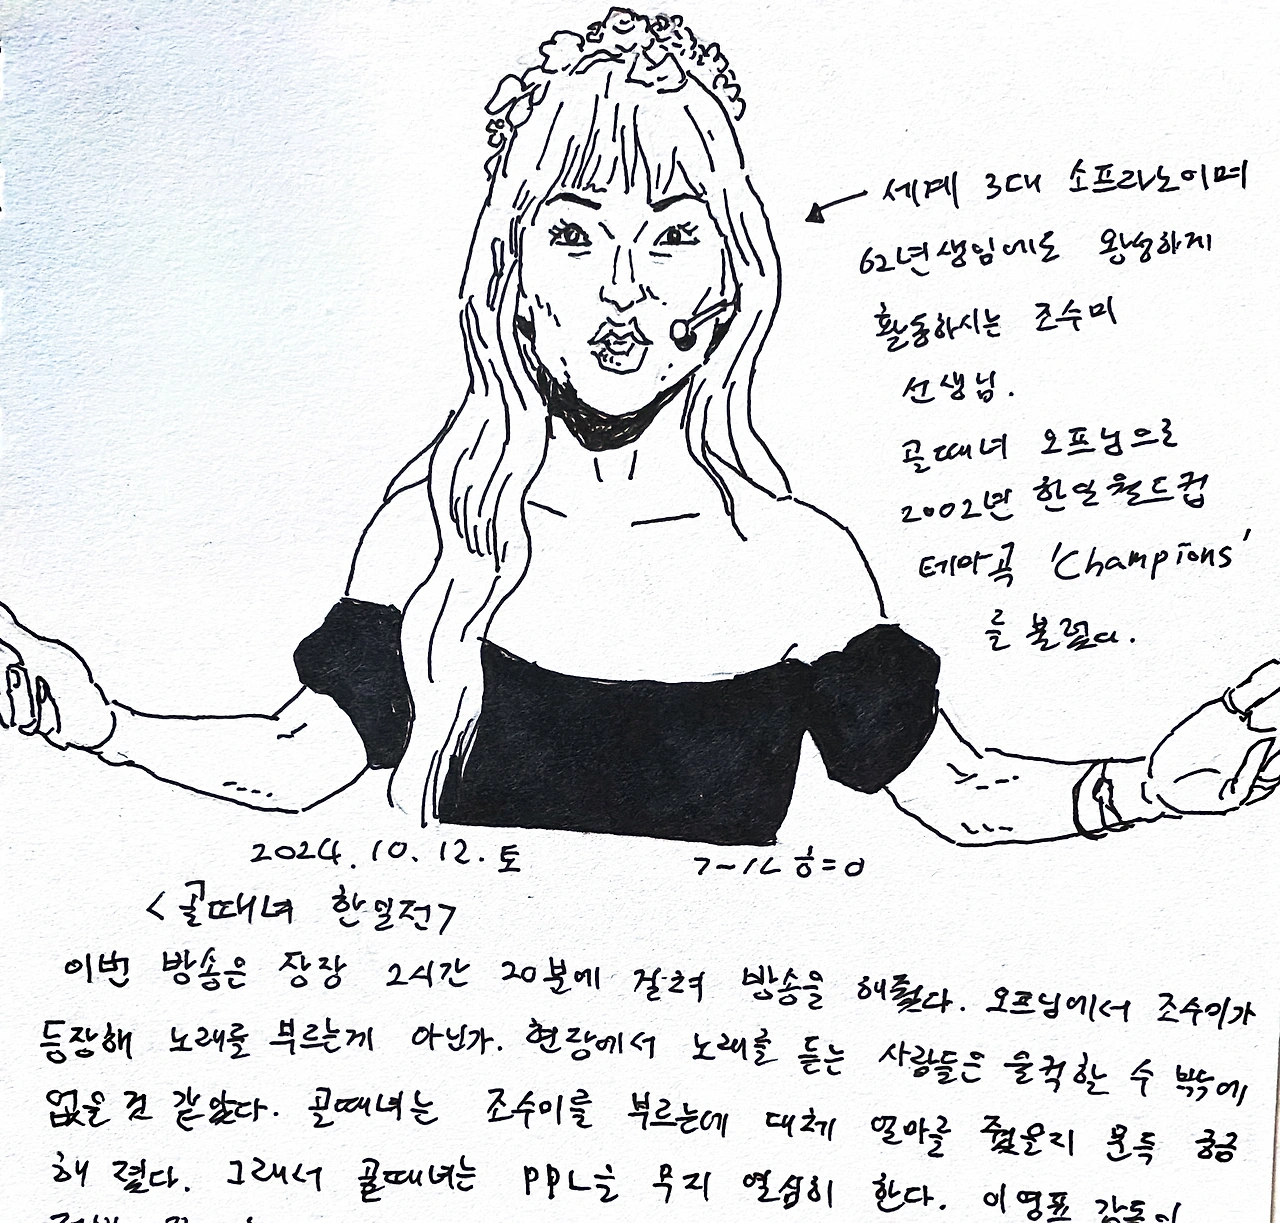 세계 3대 소프라노이며
62년생임에도 왕성하게
활동하시는 조수미
선생님.
골때녀 오프닝으로
2002년 한일월드컵
테마곡 'Champions'
를 불렀다.
2024. 10. 12. 토
<골때녀 한일전>
이번 방송은 장장 2시간 20분에 걸쳐 방송을 해줬다. 오프닝에서 조수미가
등장해 노래를 부르는게 아닌가. 현장에서 노래를 듣는 사람들은 울컥할 수 밖에
없을 것 같았다. 골때녀는 조수미를 부르는데 대체 얼마를 줬을지 문득 궁금
해 졌다. 그래서 골때녀는 PPL을 무지 열심히 한다. 이영표 감독이